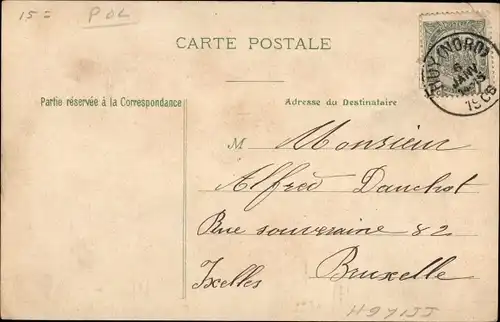 15=
POL
CARTE POSTALE
HUY (NORD)
5
JANV
1908
Partie réservée à la Correspondance
Adresse du Destinataire
M Monsieur
Alfred Danchot
Rue souveraine 82
Ixelles Bruxelle